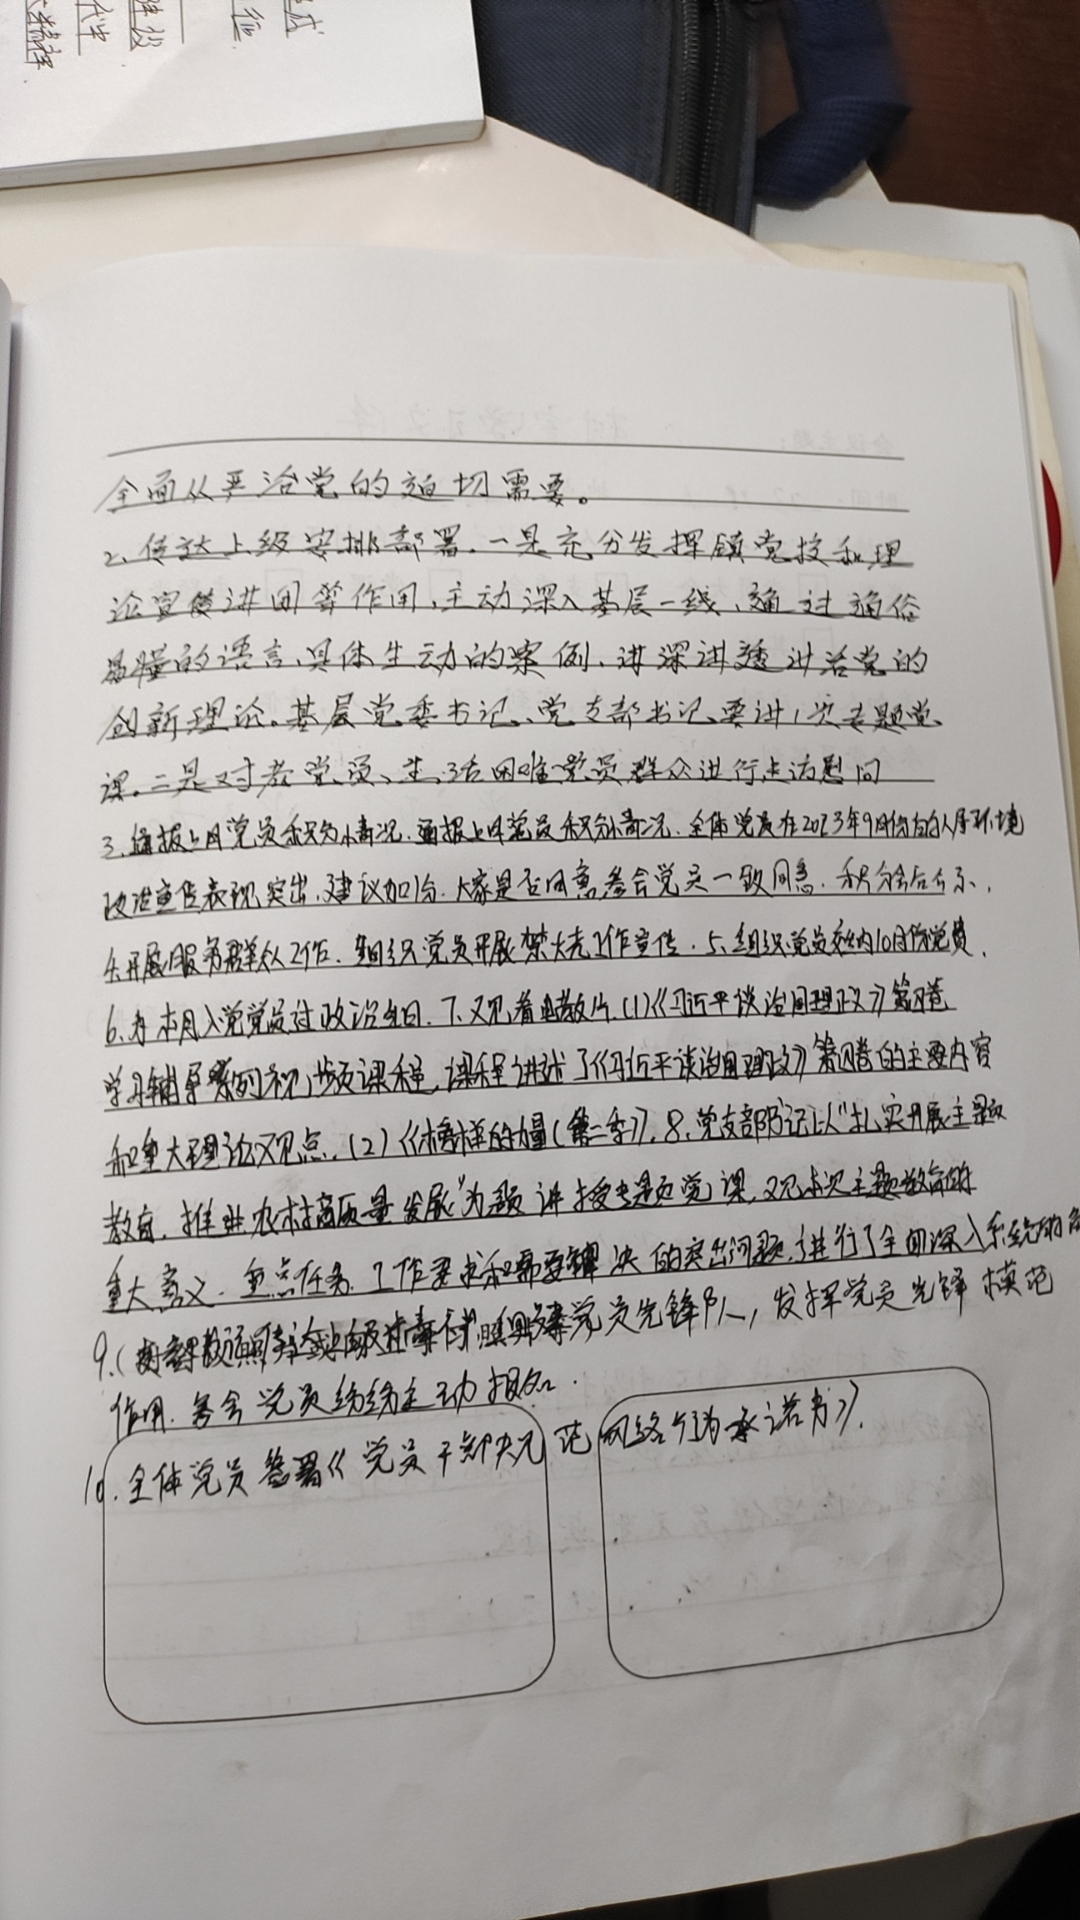 全面从严治党的迫切需要。
2、传达上级安排部署.一是充分发挥镇党校和理
论宣传讲团等作用、主动深入基层一线、通过通俗
易懂的语言、具体生动的案例、讲深讲透讲活党的
创新理论。基层党委书记、党支部书记、要讲1次专题党
课.二是对老党员、生活困难党员群众进行走访慰问
3.通报上月党员积分情况.通报上月党员积分情况.全体党员在2023年9月份的人居环境
改造宣传表现突出.建议加1分.大家是否同意参会党员一致同意.积分会后公示.
4.开展服务群众工作.组织党员开展禁火工作宣传.5.组织党员交纳10月份党费.
6.为本月入党党员过政治生日.7.观看电教片.(1)《习近平谈治国理政》第四卷
学习辅导系列视频课程,课程讲述了《习近平谈治国理政》第四卷的主要内容
和重大理论观点.(2)《榜样的力量(第二季)》.8.党支部书记以"扎实开展主题
教育.推进农村高质量发展"为题讲授专题党课,对本次主题教育的
重大意义.重点任务.工作要求和需要解决的突出问题.进行了全面深入系统的
党员先锋队,发挥党员先锋模范
作用.参会党员纷纷主动报名.
10.全体党员签署《党员干部规范网络行为承诺书》.